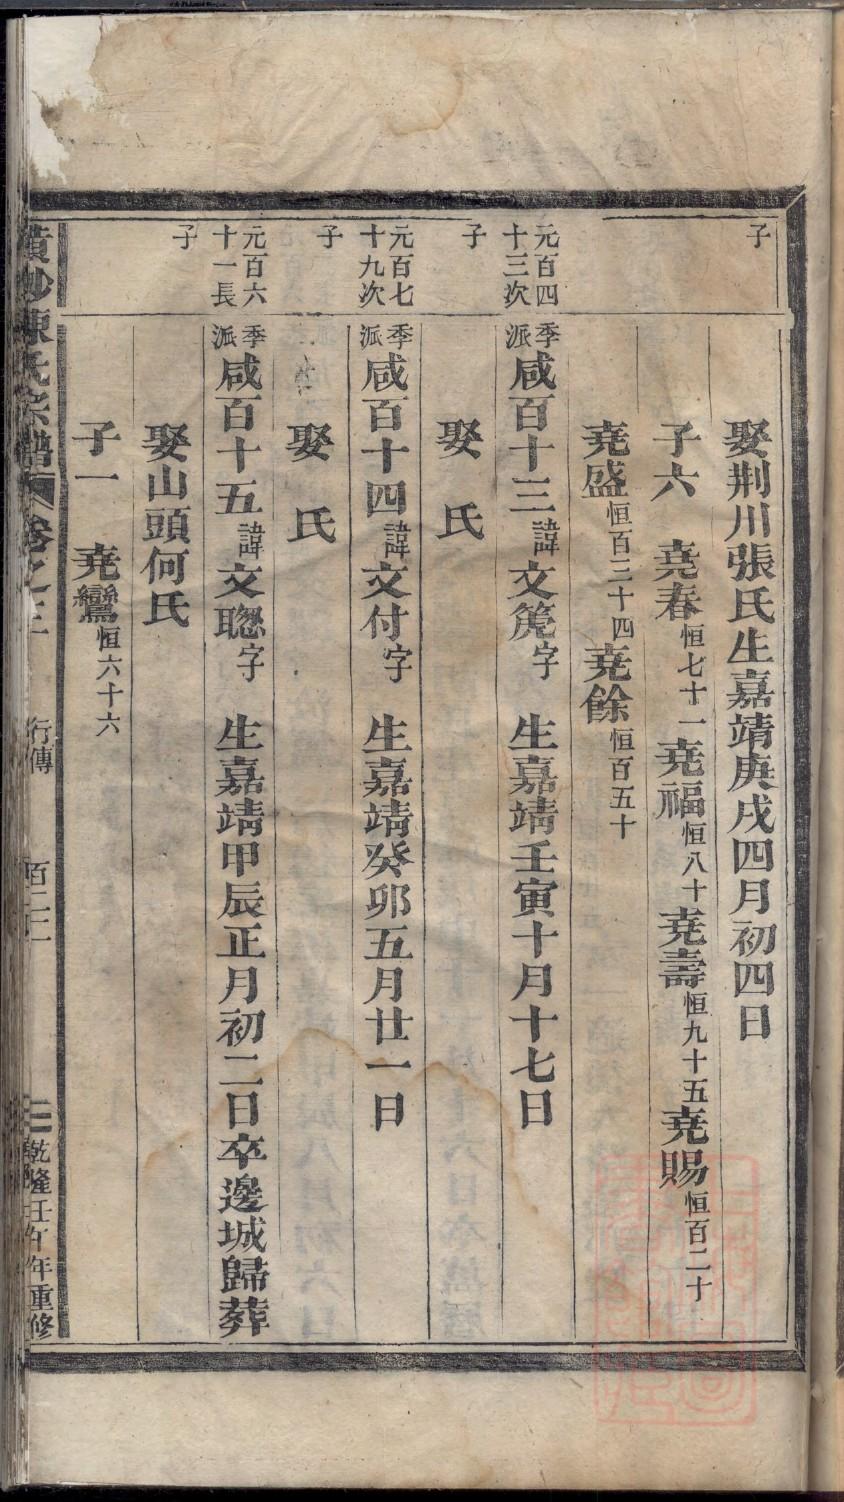 子
娶荆川張氏生嘉靖庚戌四月初四日
子六 堯春恒七十一堯福恒八十堯壽恒九十五堯賜恒百二十
堯盛恒百二十四堯餘恒百五十
元百四十三次子
季派咸百十三諱文箎字 生嘉靖壬寅十月十七日
娶 氏
元百七十九次子
季派咸百十四諱文付字 生嘉靖癸卯五月廿一日
娶 氏
元百六十一長子
季派咸百十五諱文聰字 生嘉靖甲辰正月初二日卒邊城歸葬
娶山頭何氏
子一 堯鸞恒六十六
陳氏宗譜 卷之三 行傳 乾隆壬午年重修